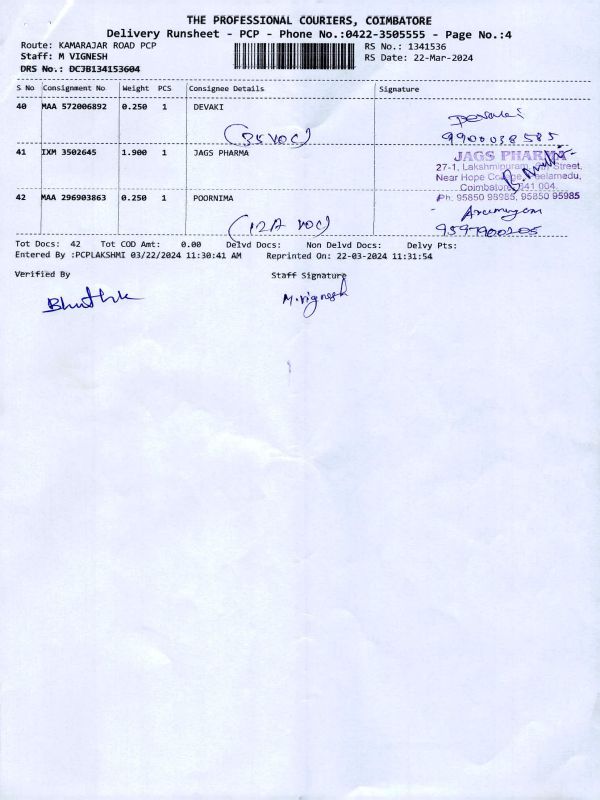 THE PROFESSIONAL COURIERS, COIMBATORE
Delivery Runsheet - PCP - Phone No.:0422-3505555 - Page No.:4
Route: KAMARAJAR ROAD PCP RS No.: 1341536
Staff: M VIGNESH RS Date: 22-Mar-2024
DRS No.: DCJB134153604
S No Consignment No Weight PCS Consignee Details Signature
40 MAA 572006892 0.250 1 DEVAKI
9900038585
41 IXM 3502645 1.900 1 JAGS PHARMA
JAGS PHARMA
27-1, Lakshmipuram, Street,
Near Hope College, Peelamedu,
Coimbatore 641 004.
Ph: 95850 98985, 95850 95985
42 MAA 296903863 0.250 1 POORNIMA
(12A VOC)
9597900205
Tot Docs: 42 Tot COD Amt: 0.00 Delvd Docs: Non Delvd Docs: Delvy Pts:
Entered By :PCPLAKSHMI 03/22/2024 11:30:41 AM Reprinted On: 22-03-2024 11:31:54
Verified By Staff Signature
M.Vignesh